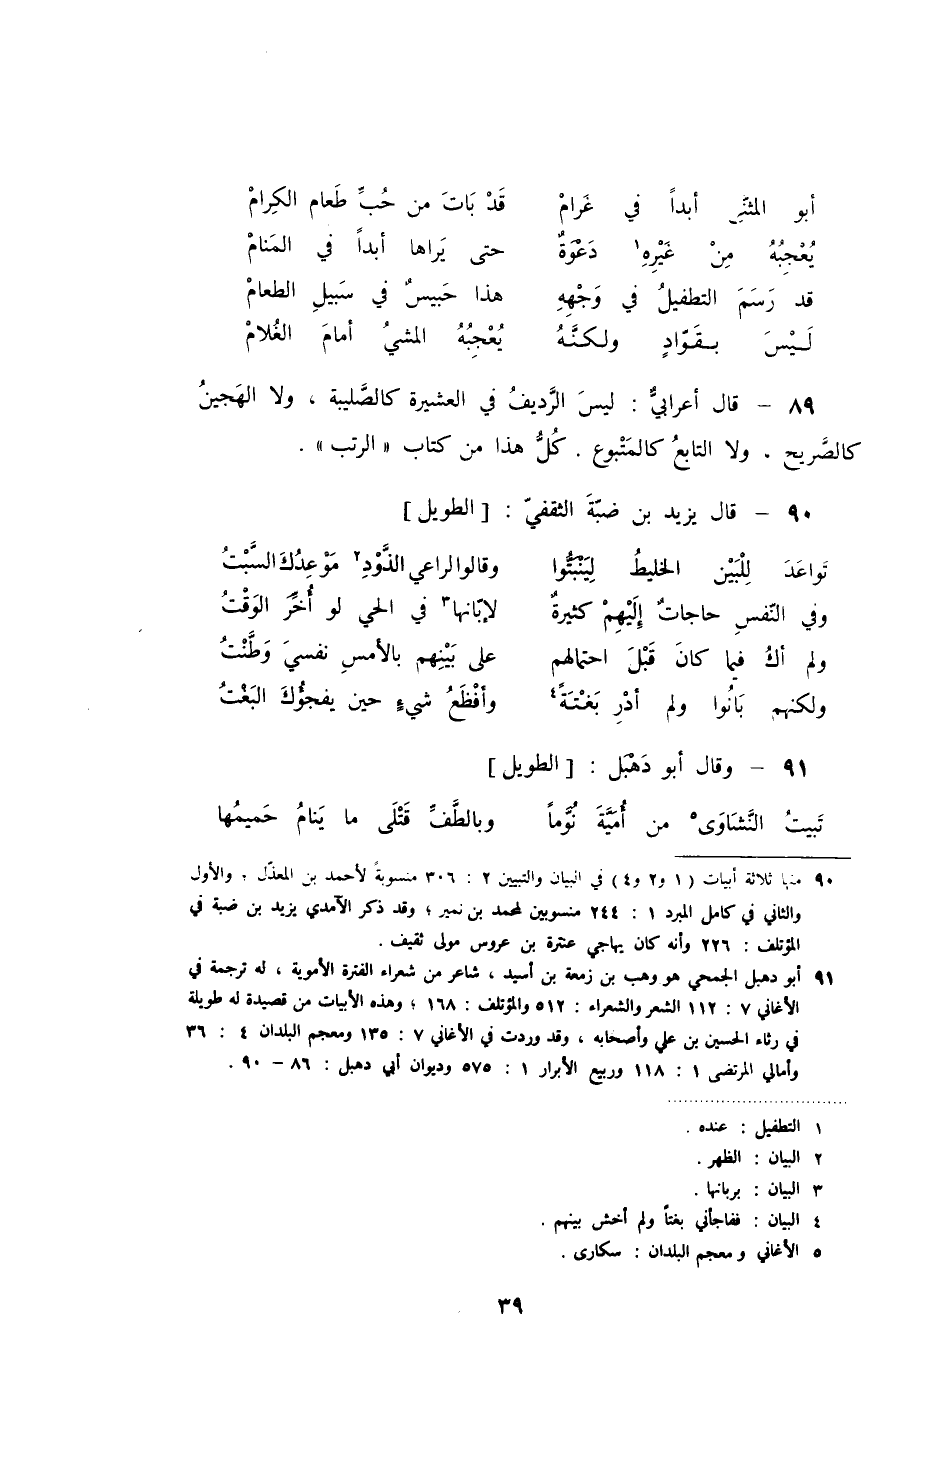 أبو المثنّى أبداً في غَرامْ قَدْ بَاتَ من حُبِّ طَعام الكِرامْ
يُعْجِبُهُ مِنْ غَيْرِهِ١ دَعْوَةٌ حتى يَراها أبداً في المَنامْ
قد رَسَمَ التطفيلُ في وَجْهِهِ هذا حَبيسٌ في سَبيلِ الطعامْ
لَيْسَ بقَوّادٍ ولكنَّهُ يُعْجِبُهُ المشيُ أمامَ الغُلامْ
٨٩ – قال أعرابيٌّ : ليسَ الرَّديفُ في العشيرة كالصَّليبة ، ولا الهَجينُ
كالصَّريح . ولا التابعُ كالمَتْبوع . كُلُّ هذا من كتاب « الرتب » .
٩٠ – قال يزيد بن ضبّةَ الثقفيّ : [ الطويل ]
تَواعَدَ لِلْبَيْن الخليطُ لِيَنْبَتُّوا وقالوا لراعي الذَّوْدِ٢ مَوْعِدُكَ السَّبْتُ
وفي النّفسِ حاجاتٌ إلَيْهِمْ كثيرةٌ لإبّانها٣ في الحي لو أُخِّرَ الوَقْتُ
ولم أكُ فيما كانَ قَبْلَ احتمالهم على بَيْنِهم بالأمسِ نفسيَ وَطَّنْتُ
ولكنهم بَانُوا ولم أدْرِ بَغْتَةً٤ وأفْظَعُ شيءٍ حين يفجؤُكَ البَغْتُ
٩١ – وقال أبو دَهْبَل : [ الطويل ]
تَبيتُ النَّشَاوَى٥ من أُمَيَّةَ نُوَّماً وبالطَّفِّ قَتْلَى ما يَنامُ حَميمُها
٩٠ منها ثلاثة أبيات ( ١ و٢ و٤ ) في البيان والتبيين ٢ : ٣٠٦ منسوبةً لأحمد بن المعذّل . والأول
والثاني في كامل المبرد ١ : ٢٤٤ منسوبين لمحمد بن نمير ؛ وقد ذكر الآمدي يزيد بن ضبة في
المؤتلف : ٢٢٦ وأنه كان يهاجي عنترة بن عروس مولى ثقيف .
٩١ أبو دهبل الجمحي هو وهب بن زمعة بن أسيد ، شاعر من شعراء الفترة الأموية ، له ترجمة في
الأغاني ٧ : ١١٢ الشعر والشعراء : ٥١٢ والمؤتلف : ١٦٨ ؛ وهذه الأبيات من قصيدة له طويلة
في رثاء الحسين بن علي وأصحابه ، وقد وردت في الأغاني ٧ : ١٣٥ ومعجم البلدان ٤ : ٣٦
وأمالي المرتضى ١ : ١١٨ وربيع الأبرار ١ : ٥٧٥ وديوان أبي دهبل : ٨٦ – ٩٠ .
١ التطفيل : عنده .
٢ البيان : الظهر .
٣ البيان : بربانها .
٤ البيان : ففاجأني بغتاً ولم أخش بينهم .
٥ الأغاني ومعجم البلدان : سكارى .
٣٩